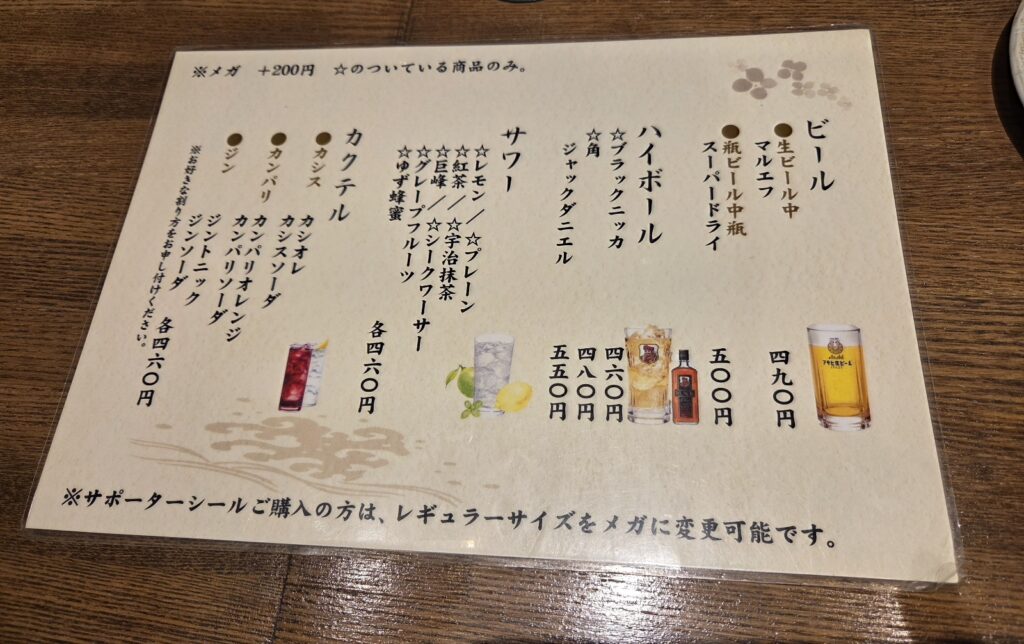 ※メガ　+200円　☆のついている商品のみ。
ビール
●生ビール中
マルエフ
四九〇円
●瓶ビール中瓶
スーパードライ
五〇〇円
ハイボール
☆ブラックニッカ
四六〇円
☆角
四八〇円
ジャックダニエル
五五〇円
サワー
☆レモン／☆プレーン
☆紅茶／☆宇治抹茶
☆巨峰／☆シークワーサー
☆グレープフルーツ
☆ゆず蜂蜜
各四六〇円
カクテル
●カシス
カシオレ
カシスソーダ
●カンパリ
カンパリオレンジ
カンパリソーダ
●ジン
ジントニック
ジンソーダ
各四六〇円
※お好きな割り方をお申し付けください。
Asahi
アサヒ生ビール
※サポーターシールご購入の方は、レギュラーサイズをメガに変更可能です。